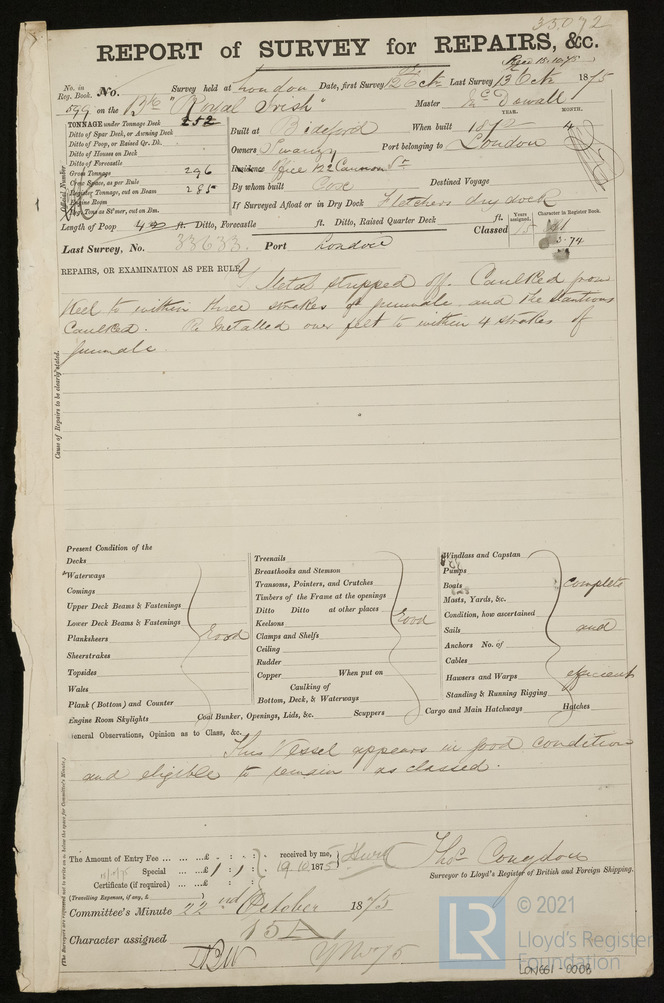 35072
REPORT of SURVEY for REPAIRS, &c.
Rec 15.10.75
No. in Reg. Book. No. Survey held at London Date, first Survey 12th Octr Last Survey 13 Octr 1875
599 on the Bk "Royal Irish" Master McDowall
TONNAGE under Tonnage Deck 252
YEAR. MONTH.
Ditto of Spar Deck, or Awning Deck
Built at Bideford When built 1872 4
Ditto of Poop, or Raised Qr. Dk.
Ditto of Houses on Deck
Owners Swanzy Port belonging to London
Ditto of Forecastle
Gross Tonnage 296
Residence Office 122 Cannon St
Crew Space, as per Rule
Register Tonnage, cut on Beam 285
By whom built Cox Destined Voyage
Engine Room
Reg. Tons as St'mer, cut on Bm.
If Surveyed Afloat or in Dry Dock Fletchers dry dock
Official Number
Length of Poop ft. Ditto, Forecastle ft. Ditto, Raised Quarter Deck ft.
Years assigned. Character in Register Book.
Classed 15 A1
3.74
Last Survey, No. 33633. Port London
REPAIRS, OR EXAMINATION AS PER RULE, Metal stripped off. Caulked from
keel to within three strakes of gunwale and the stantions
Caulked. Re Metalled over felt to within 4 strakes of
gunwale.
Cause of Repairs to be clearly stated.
Present Condition of the
Decks
Waterways
Comings
Upper Deck Beams & Fastenings
Lower Deck Beams & Fastenings
Planksheers Good
Sheerstrakes
Topsides
Wales
Plank (Bottom) and Counter
Engine Room Skylights Coal Bunker, Openings, Lids, &c. Scuppers Cargo and Main Hatchways Hatches
Treenails
Breasthooks and Stemson
Transoms, Pointers, and Crutches
Timbers of the Frame at the openings
Ditto Ditto at other places
Keelsons Good
Clamps and Shelfs
Ceiling
Rudder
Copper When put on
Caulking of
Bottom, Deck, & Waterways
Windlass and Capstan
Pumps
Boats complete
Masts, Yards, &c.
Condition, how ascertained
Sails and
Anchors No. of
Cables
Hausers and Warps efficient
Standing & Running Rigging
General Observations, Opinion as to Class, &c.
This Vessel appears in good condition
and eligible to remain as classed.
(The Surveyors are requested not to write on or below the space for Committee's Minute.)
The Amount of Entry Fee ... ... ...£ : : received by me,
Special ... ...£ 1 : 1 : 19/10 1875
Certificate (if required) ... ...£ : :
(Travelling Expenses, if any, £ )
Thos Congdon
Surveyor to Lloyd's Register of British and Foreign Shipping.
Committee's Minute 22nd October 1875
Character assigned 15A
© 2021
LR
Lloyd's Register
Foundation
LON661-0008